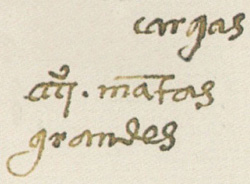 cargas
mãtas
grandes